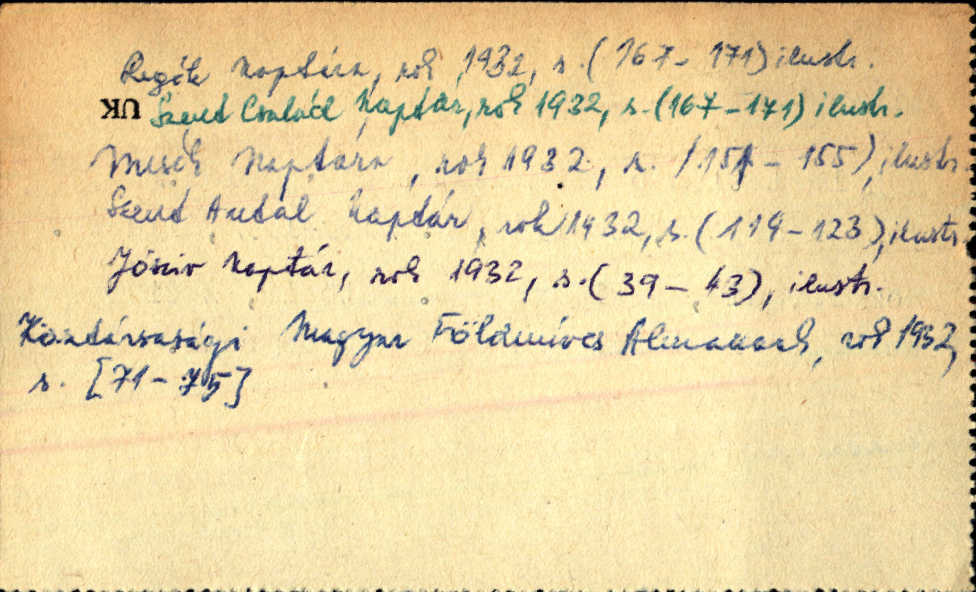 Regék naptára, rok 1932, s. (167-171) ilustr.
UK Szent Család Naptár, rok 1932, s. (167-171) ilustr.
Mesék Naptára, rok 1932, s. (151-155), ilustr.
Szent Antal Naptár, rok 1932, s. (119-123), ilustr.
Jószív Naptár, rok 1932, s. (39-43), ilustr.
Köztársasági Magyar Földmíves Almanach, rok 1932,
s. [71-75]